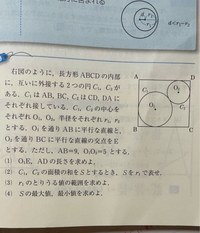 d r₂
r₁
d<r₁−r₂
右図のように，長方形ABCDの内部
に，互いに外接する2つの円C₁，C₂が
ある。C₁はAB，BC，C₂はCD，DAに
それぞれ接している。C₁，C₂の中心を
それぞれO₁，O₂，半径をそれぞれr₁，r₂
とする。O₁を通りABに平行な直線と，
O₂を通りBCに平行な直線の交点をE
とする。ただし，AB=9，O₁O₂=5とする。
(1) O₁E，ADの長さを求めよ。
(2) C₁，C₂の面積の和をSとするとき，Sをr₁で表せ。
(3) r₁のとりうる値の範囲を求めよ。
(4) Sの最大値，最小値を求めよ。
A D
C₂
O₂
C₁
O₁
B C